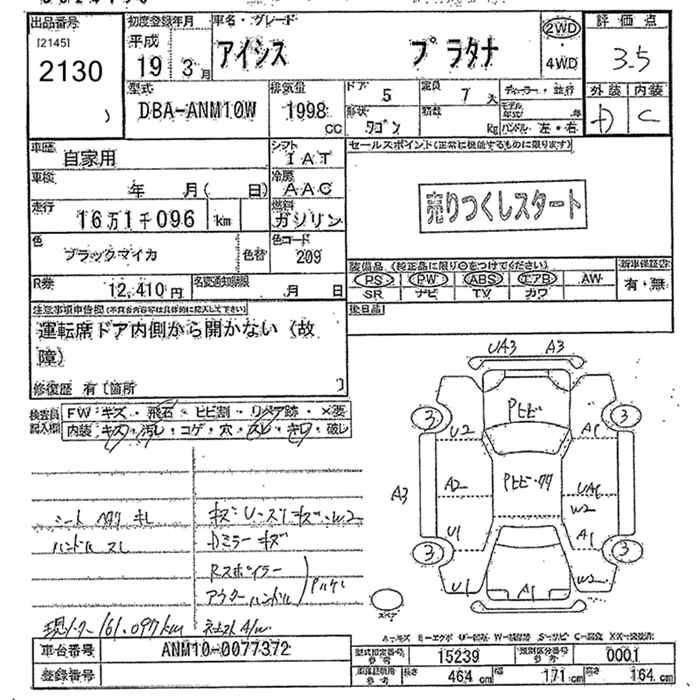 出品番号 初度登録年月 車名・グレード 評価点
[2145]
2130
平成
19 3月
アイシス プラタナ
2WD
・
4WD
3.5
外装 内装
D C
型式 排気量 ドア 5 定員 7 人
DBA-ANM10W 1998 CC
形状 ワゴン kg ハンドル 左・右
車歴 自家用
シフト IAT
セールスポイント(正常に機能するものに限ります)
車検 年 月( 日)
冷房 AAC
売りつくしスタート
走行 16万1千096 km
燃料 ガソリン
色 ブラックマイカ 色替
色コード 209
装備品 (純正品に限り○をつけてください) 新車保証書
PS PW ABS エアB AW 有・無
SR ナビ TV カワ
R券 12,410円 名変通知期限 月 日
後日品
注意事項申告欄
運転席ドア内側から開かない(故
障)
修復歴 有[箇所 ]
検査員
記入欄
FW キズ・飛石・ヒビ割・リペア跡・×要
内装 キズ・汚レ・コゲ・穴・スレ・キレ・破レ
UA3 A3
3 3
Pヒビ
U2 A1
A3 A2 UA1
W2
U1 A1
3 3
U1 A1 W2
シート キレ
ハンドル スレ
キズ W2
Dミラー キズ
Rスポイラー
アウターハンドル
161.097km
スペア
車台番号 ANM10-0077372
登録番号
型式指定番号 15239 類別区分番号 0001
長さ 464 cm 幅 171 cm 高さ 164 cm